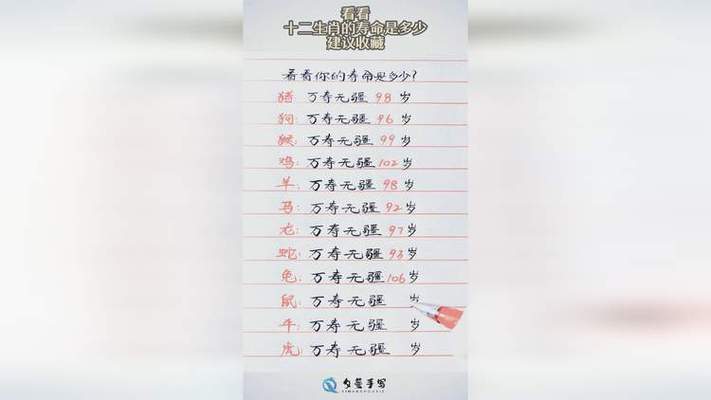 看看
十二生肖的寿命是多少
建议收藏
看看你的寿命是多少?
猪: 万寿无疆 98 岁
狗: 万寿无疆 96 岁
猴: 万寿无疆 99 岁
鸡: 万寿无疆 102 岁
羊: 万寿无疆 98 岁
马: 万寿无疆 92 岁
龙: 万寿无疆 97 岁
蛇: 万寿无疆 93 岁
兔: 万寿无疆 106 岁
鼠: 万寿无疆 岁
牛: 万寿无疆 岁
虎: 万寿无疆 岁